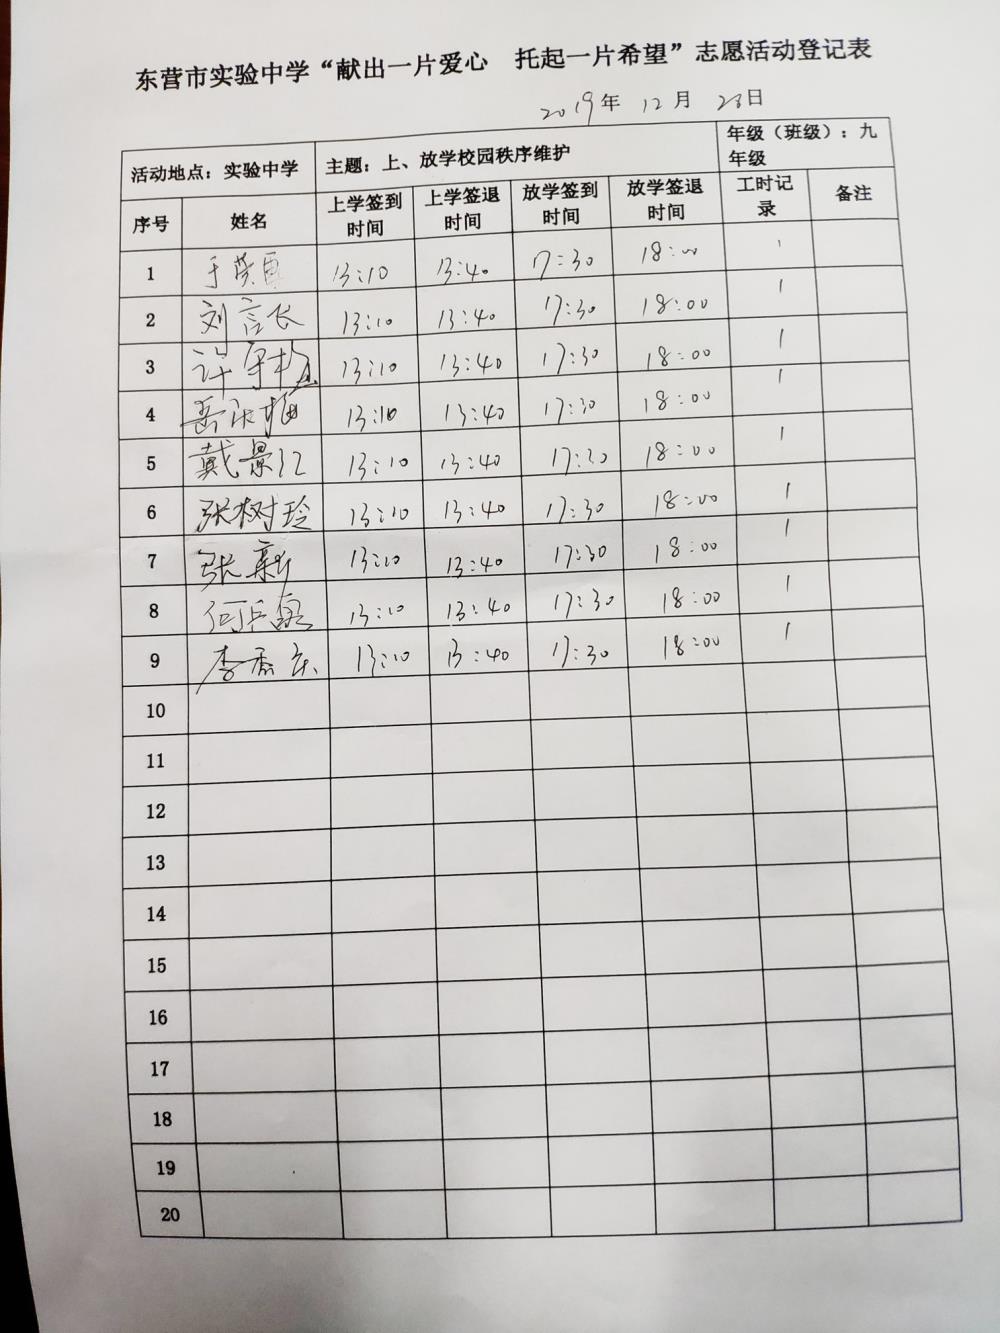 东营市实验中学“献出一片爱心 托起一片希望”志愿活动登记表
2019年 12月 28日
活动地点：实验中学 主题：上、放学校园秩序维护 年级（班级）：九年级
序号 姓名 上学签到时间 上学签退时间 放学签到时间 放学签退时间 工时记录 备注
1 13:10 13:40 17:30 18:00 1
2 刘言长 13:10 13:40 17:30 18:00 1
3 许 13:10 13:40 17:30 18:00 1
4 岳 13:10 13:40 17:30 18:00 1
5 戴景江 13:10 13:40 17:30 18:00 1
6 张树玲 13:10 13:40 17:30 18:00 1
7 张新 13:10 13:40 17:30 18:00 1
8 何 13:10 13:40 17:30 18:00 1
9 李香东 13:10 13:40 17:30 18:00 1
10
11
12
13
14
15
16
17
18
19
20